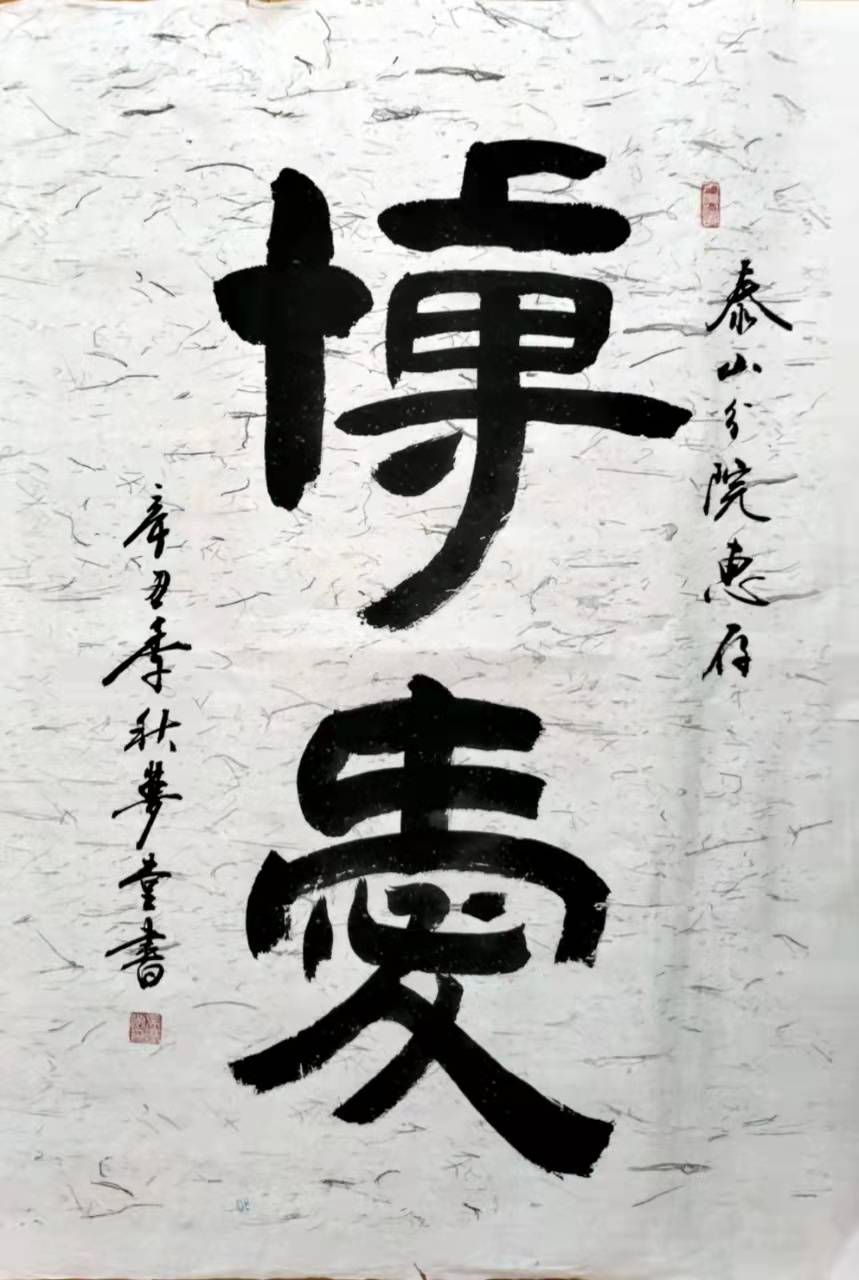 泰山分院惠存
博愛
辛丑季秋夢堂書